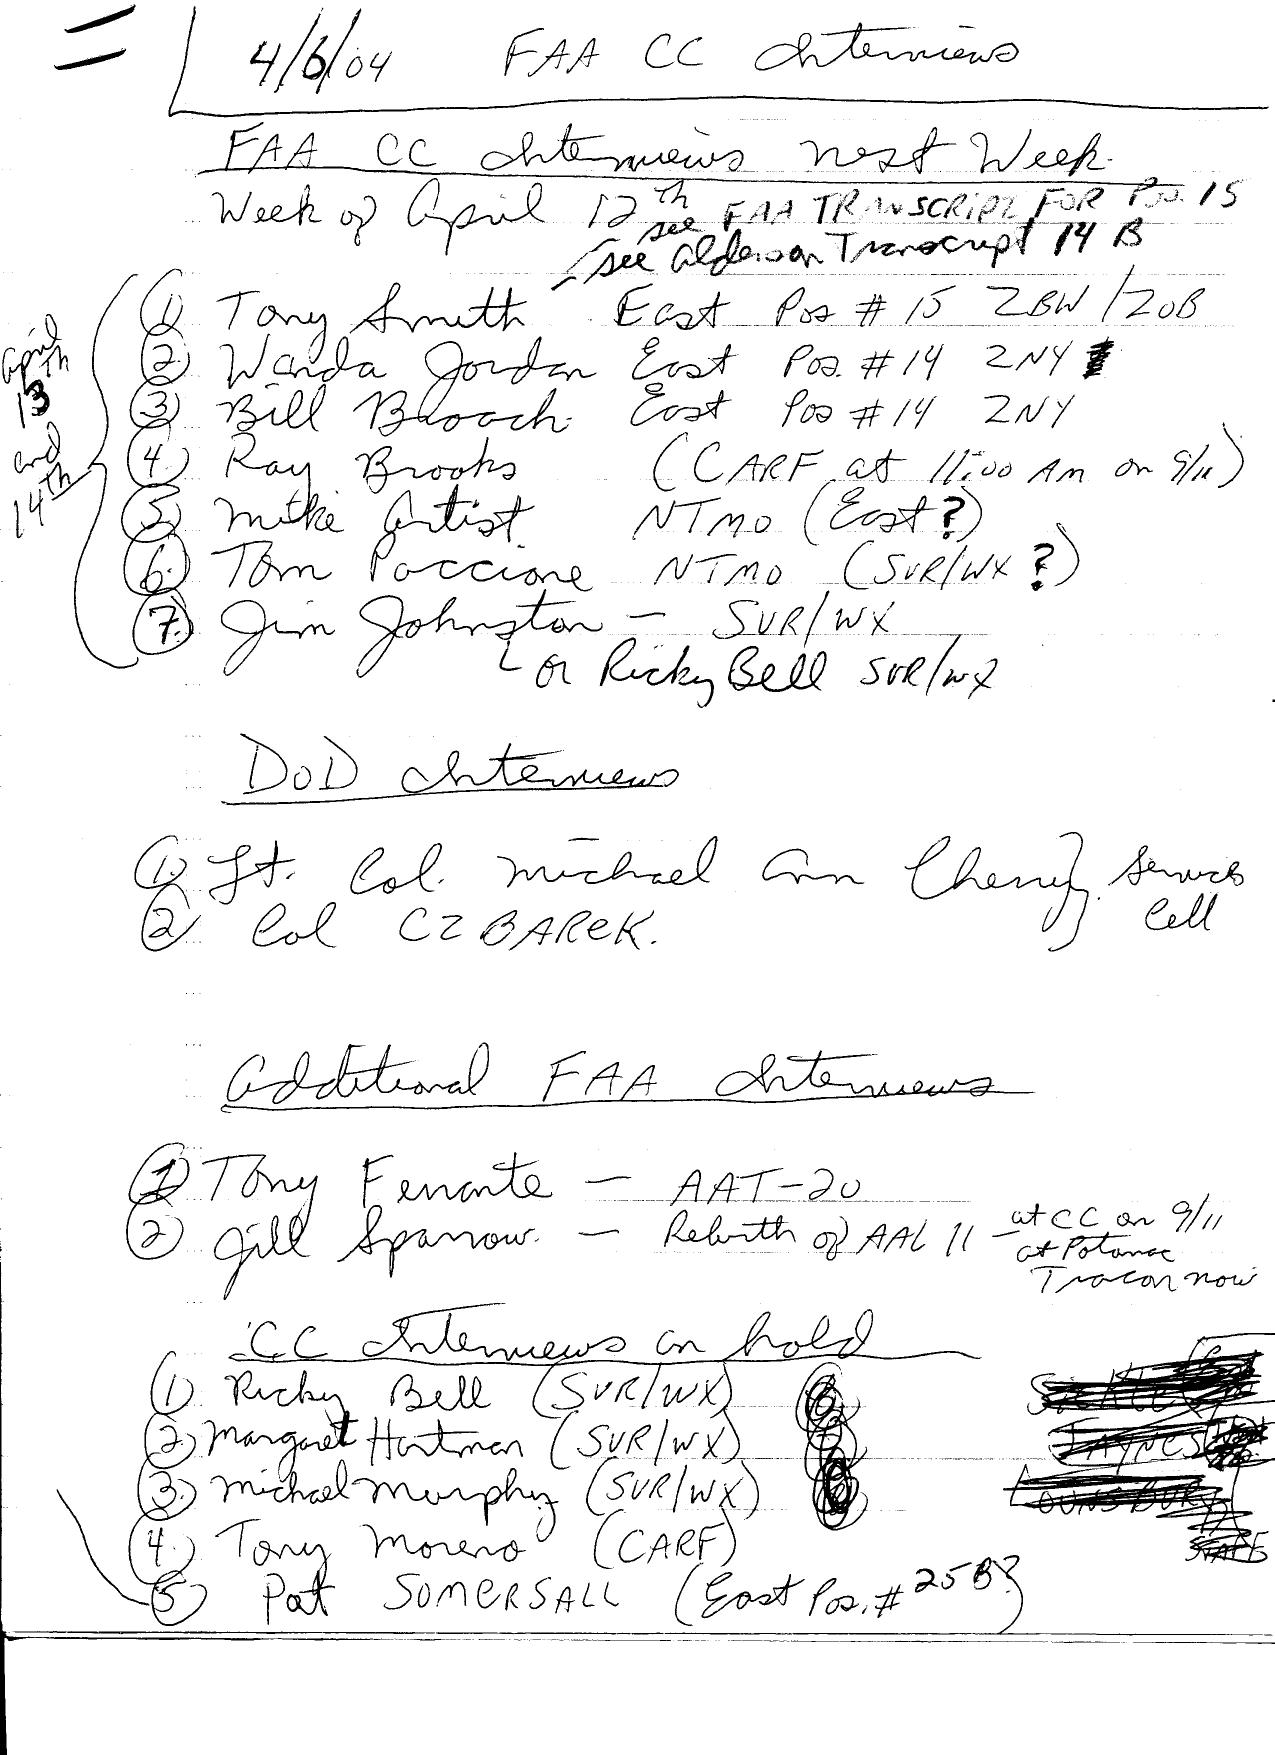 4/6/04 FAA CC Interviews
FAA CC Interviews next Week.
Week of April 12th see FAA TRANSCRIPT FOR Pos. 15
see Alderson Transcript 14 B
April 13th and 14th
1) Tony Smith East Pos # 15 ZBW / ZOB
2) Wanda Jordan East Pos. # 14 ZNY
3) Bill Brooch. East Pos # 14 ZNY
4) Ray Brooks (CARF at 11:00 AM on 9/11)
5) Mike Artist NTMO (East?)
6) Tom Paccione NTMO (SVR/WX?)
7) Jim Johnston – SVR/WX
or Ricky Bell SVR/WX
DoD Interviews
1) Lt. Col. Michael Ann Cherry } Services Cell
2) Col CZBAREK.
Additional FAA Interviews
1) Tony Ferrante – AAT-20
2) Jill Sparrow. – Rebirth of AAL 11 – at CC on 9/11
at Potomac
Tracon now
CC Interviews on hold
1) Ricky Bell (SVR/WX)
2) Margaret Hartman (SVR/WX)
3) Michael Murphy (SVR/WX)
4) Tony Moreno (CARF)
5) Pat SOMERSALL (East Pos. # 25B?)